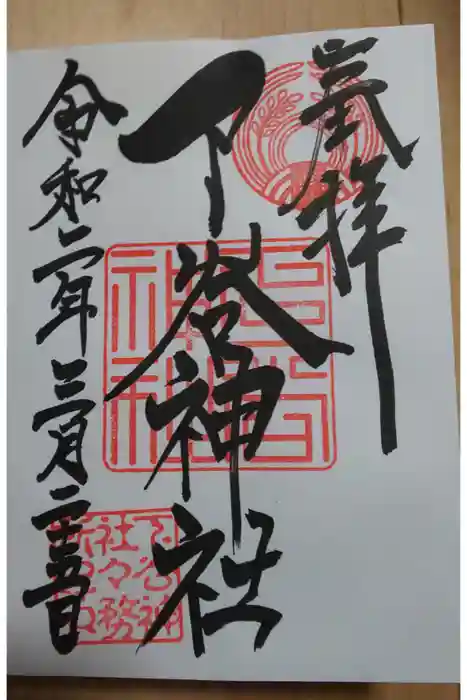 奉拝
下谷神社
令和二年三月二十五日
下谷
神社
下谷神
社々務